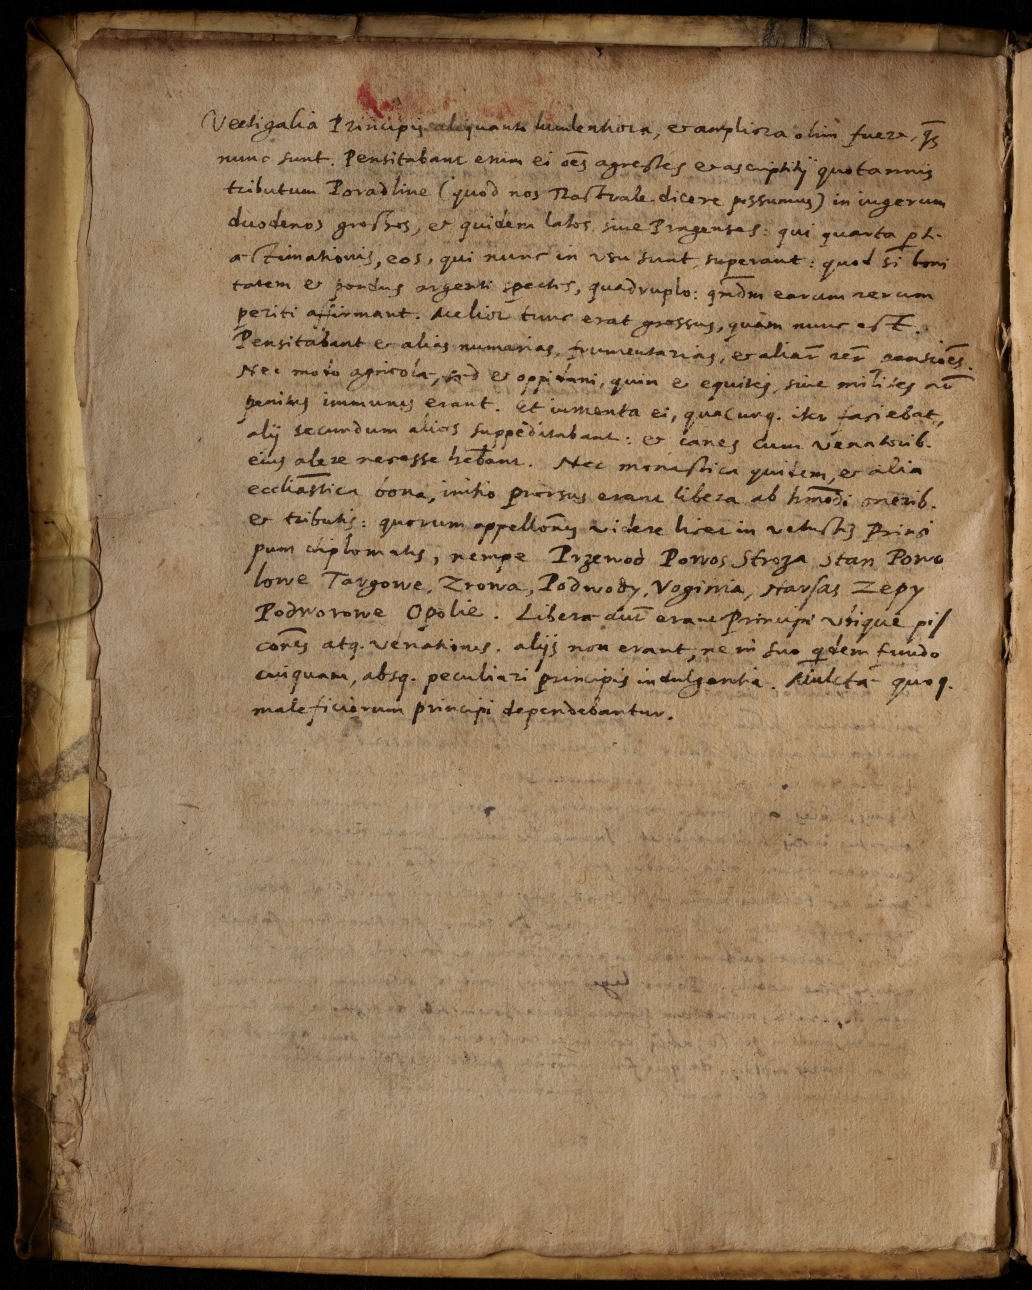 Vectigalia Principis aliquanto luculentiora, et ampliora olim fuere, q̃
nunc sunt. Pensitabant enim ei oẽs agrestes et ascriptitij quotannis
tributum Poradlne (quod nos Rastrale dicere possumus) in iugerum
duodenos grossos, et quidem latos, siue Pragenses: qui quarta
æstimationis, eos, qui nunc in vsu sunt, superant: quod si boni
tatem et pondus argenti spectes, quadruplo: earum rerum
periti affirmant. Melior tunc erat grossus, quàm nunc est.
Pensitabant et alias numarias, frumentarias, et aliar̃ rer̃ pensiões.
Nec modo agricolæ, sed et oppidani, quin et equites, siue milites nõ
penitus immunes erant. Et iumenta ei, quacunq. iter faciebat,
alij secundum alios suppeditabant: et canes cum venatorib.
eius alere necesse hẽbant. Nec monastica quidem, et alia
eccliãstica bona, initio prorsus erant libera ab hm̃odi onerib.
et tributis: quorum appellõnes videre licet in vetustis Princi
pum diplomatis, nempe Przewod Powos Stroza Stan Powo
lowe Targowe, Zrowa, Podwody, Voginia, Narsas Zepy
Podworowe Opolie. Libera aut̃ erant Principi vtique pis
cões atq. venationes. alijs non erant, ne in suo qdem fundo
cuiquam, absq. peculiari principis indulgentia. Mulctæ quoq.
maleficiorum principi dependebantur.